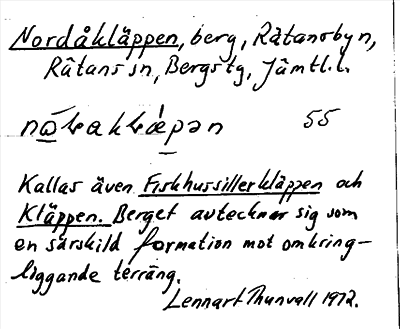 Nordåkläppen, berg, Råtansbyn,
Råtans sn, Bergs tg, Jämtl.l.
55
Kallas även Fiskhussillerkläppen och
Kläppen. Berget avtecknar sig som
en särskild formation mot omkring-
liggande terräng.
Lennart Thunvall 1972.